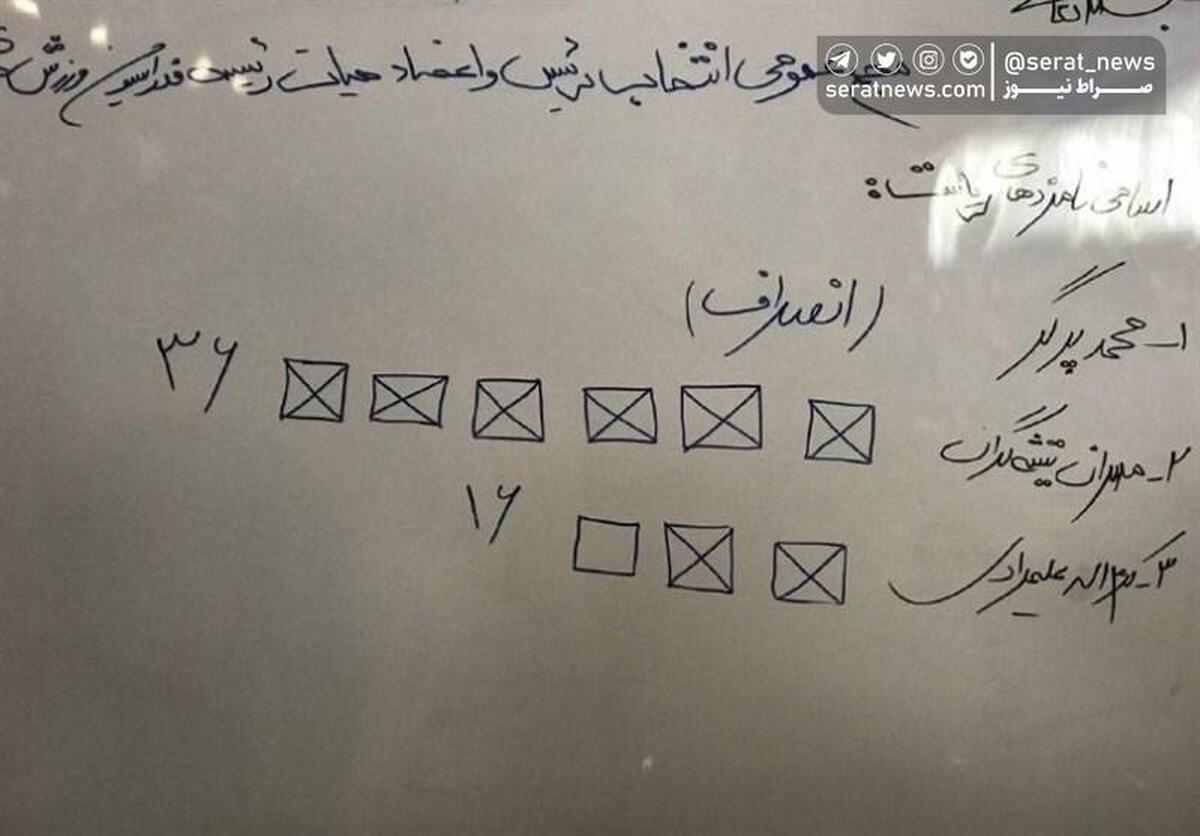 بسمه تعالی
@serat_news
seratnews.com صراط نیوز
مجمع عمومی انتخاب رئیس و اعضاء هیات رئیسه فدراسیون ورزش
اسامی نامزدهای ریاست:
۱- محمد پرگر (انصراف)
۲- مهران تیشه گران ۳۶
۳- کرم اله علیمرادی ۱۶